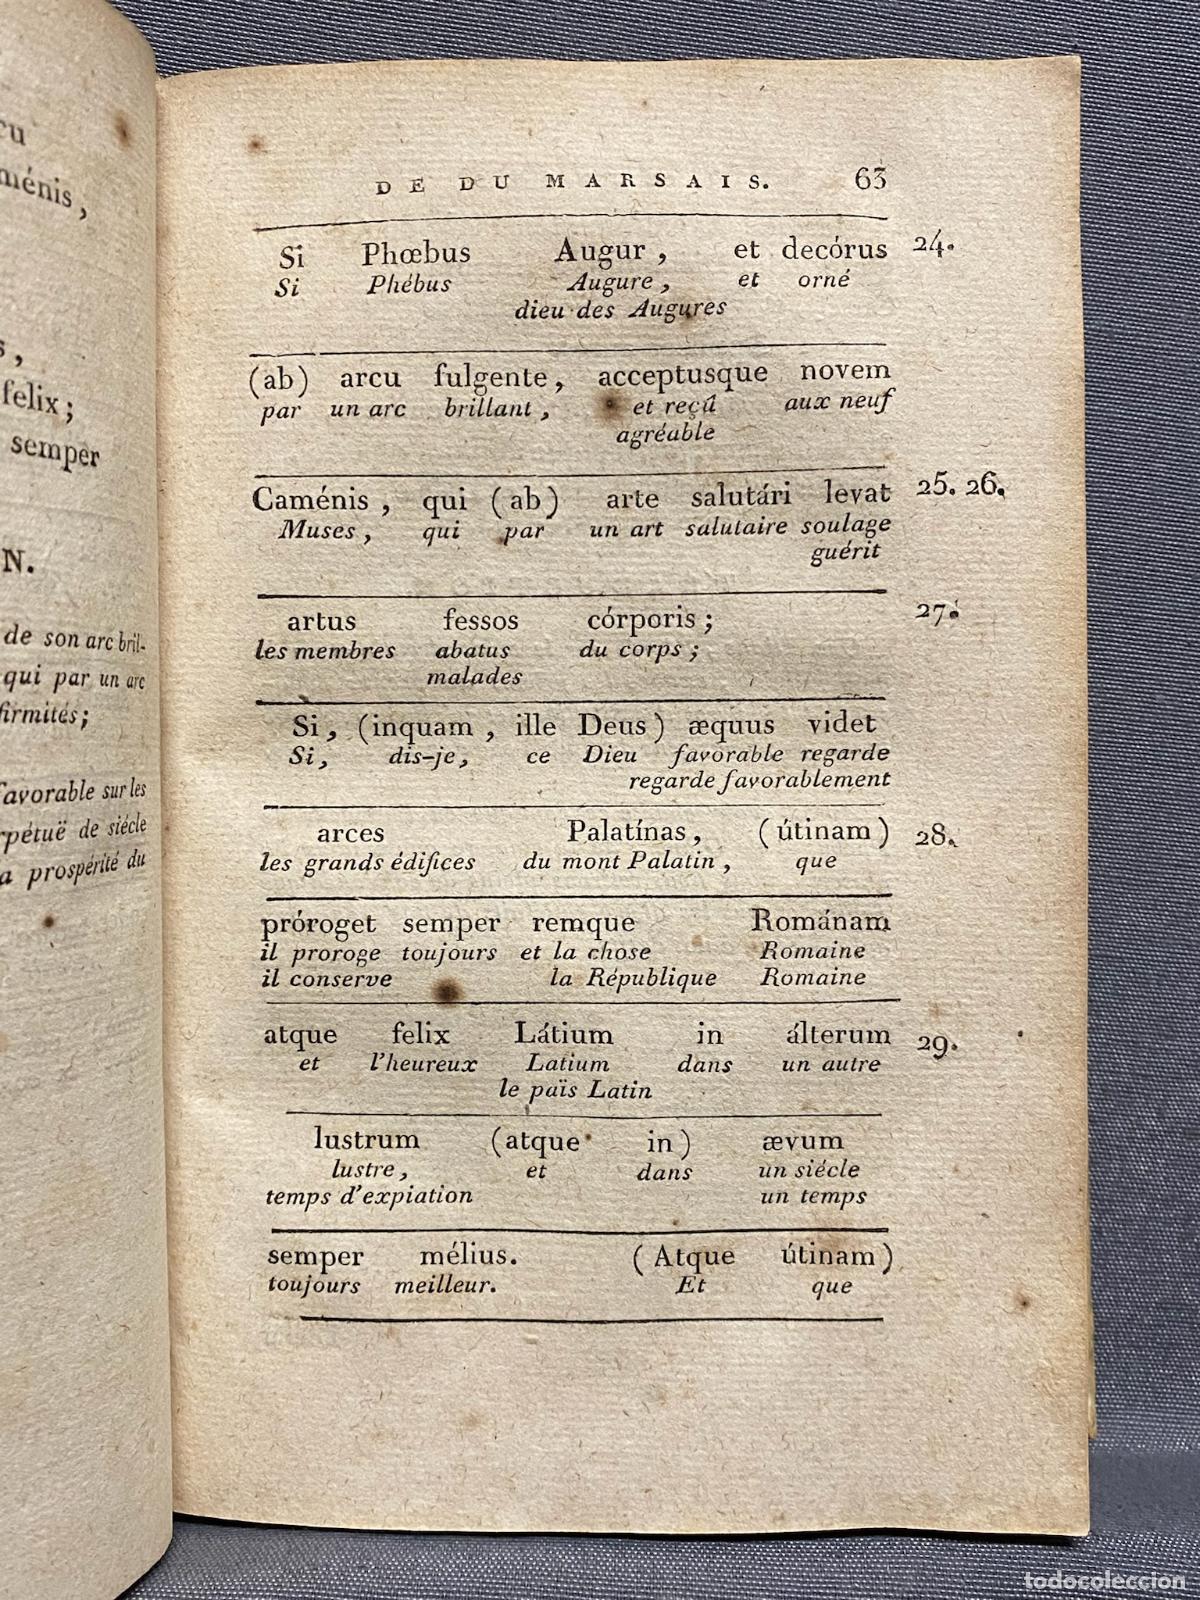 ménis,
felix;
semper
N.
de son arc bril-
qui par un arc
firmités;
favorable sur les
rpétuë de siécle
a prospérité du
DE DU MARSAIS. 63
Si Phœbus Augur, et decórus 24.
Si Phébus Augure, et orné
dieu des Augures
(ab) arcu fulgente, acceptusque novem
par un arc brillant, et reçû aux neuf
agréable
Caménis, qui (ab) arte salutári levat 25. 26.
Muses, qui par un art salutaire soulage
guérit
artus fessos córporis; 27.
les membres abatus du corps;
malades
Si, (inquam, ille Deus) æquus videt
Si, dis-je, ce Dieu favorable regarde
regarde favorablement
arces Palatínas, (útinam) 28.
les grands édifices du mont Palatin, que
próroget semper remque Románam
il proroge toujours et la chose Romaine
il conserve la République Romaine
atque felix Látium in álterum 29.
et l'heureux Latium dans un autre
le païs Latin
lustrum (atque in) ævum
lustre, et dans un siécle
temps d'expiation un temps
semper mélius. (Atque útinam)
toujours meilleur. Et que
todocoleccion